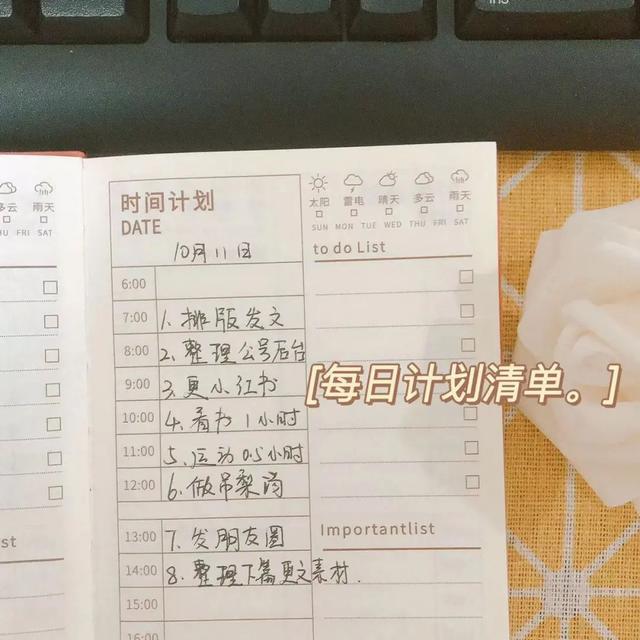 Ins
多云
雨天
HU FRI SAT
st
时间计划
DATE
10月11日
太阳 雷电 晴天 多云 雨天
SUN MON TUE WED THU FRI SAT
to do List
6:00
7:00 1、排版发文
8:00 2、整理公号后台
9:00 3、更小红书
[每日计划清单。]
10:00 4、看书1小时
11:00 5、运动0.5小时
12:00 6、做吊梨汤
Importantlist
13:00 7、发朋友圈
14:00 8、整理下篇更文素材.
15:00
16:00